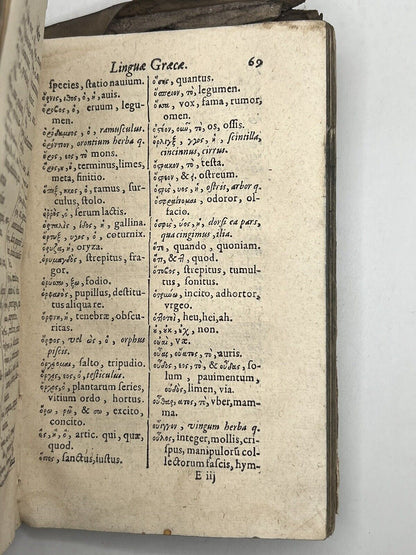 Linguæ Græcæ. 69
species, statio nauium.
ὄρνις, ιθος, ὁ, ἡ, auis.
ὄροβος, ὁ, eruum, legu-
men.
ramusculus.
orontium herba q.
ὄρος, εος, τὸ mons.
ὅρος, ὁ, terminus, limes,
meta, finitio.
ὄρπηξ, ηκος, ὁ, ramus, sur-
culus, stolo.
ὀρρὸς, ὁ, serum lactis.
ὁ, ἡ, gallina.
ὄρτυξ, υγος, ὁ, coturnix.
ὄρυζα, oryza.
ὀρυμαγδὸς, strepitus, fra-
gor.
ξω, fodio.
ὀρφανὸς, pupillus, destitu
tus aliqua re.
tenebræ, obscu-
ritas.
vel ὡς, ὁ, orphus
piscis.
salto, tripudio.
testiculus.
plantarum series,
vitium ordo, hortus.
excito,
concito.
ὃς, ἣ, ὃ, artic. qui, quæ,
quod.
sanctus, iustus.
ὅσος, quantus.
ὄσπριον, τὸ, legumen.
ὄσσα, vox, fama, rumor,
omen.
ὀστέον, οῦν, τὸ, os, ossis.
scintilla,
cincinnus, cirrus.
ὄστρακον, τὸ, testa.
ostreum.
arbor q.
odoror, ol-
facio.
ὀσφὺς, ύος, ἡ, dorsi ea pars,
qua cingimus, ilia.
ὅτι, quando, quoniam.
quod.
ὄτοβος, strepitus, tumul-
tus, sonitus.
incito, adhortor,
vrgeo.
heu, hei, ah.
οὐ, οὐκ, οὐχ, non.
οὐαὶ, væ.
οὖας, οὔατος, τὸ, auris.
οὖδος, εος, τὸ, & οὖδας, so-
lum, pauimentum,
οὐδὸς, limen, via.
οὖθαρ, ατος, τὸ, vber, mam-
ma.
vingum herba q.
οὖλος, integer, mollis, cri-
spus, manipulorū col
lectorum fascis, hym-
E iij